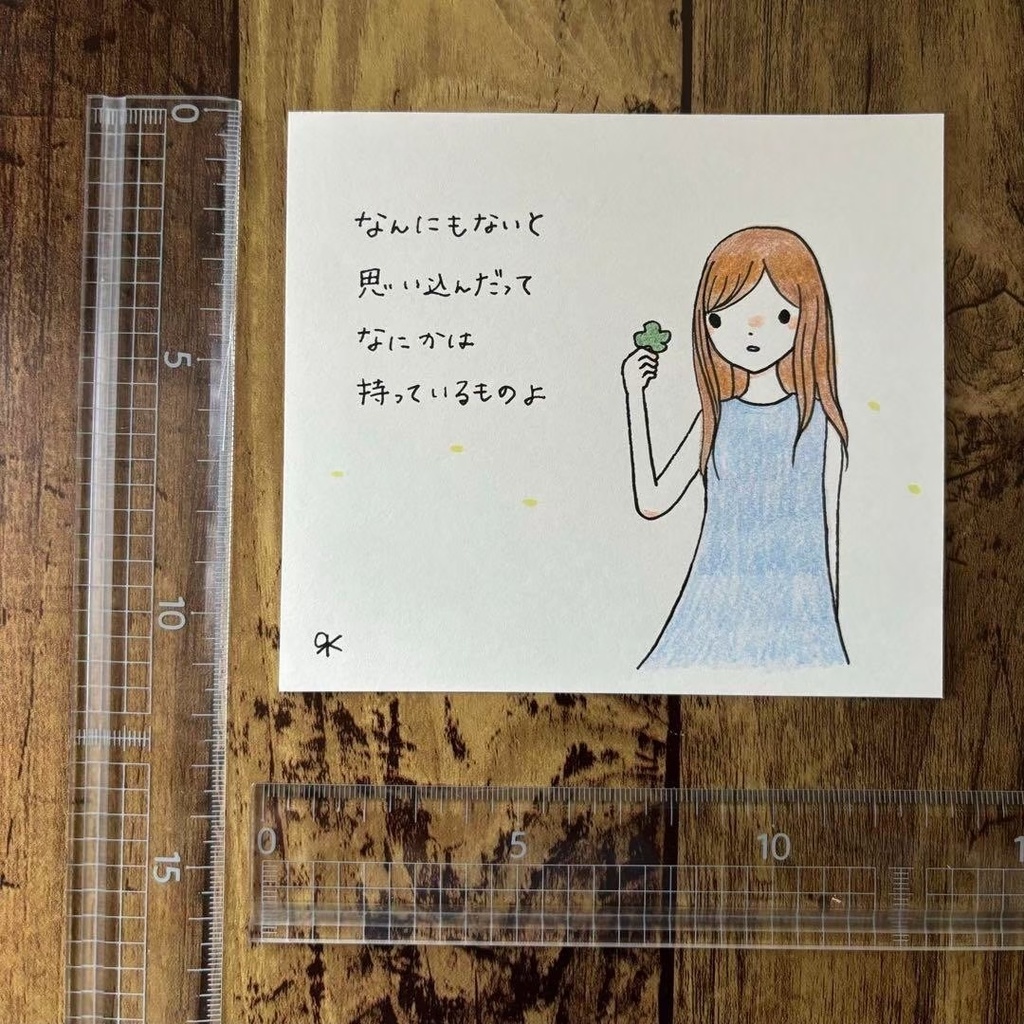 なんにもないと
思い込んだって
なにかは
持っているものよ
0
5
10
15
0
5
10
1